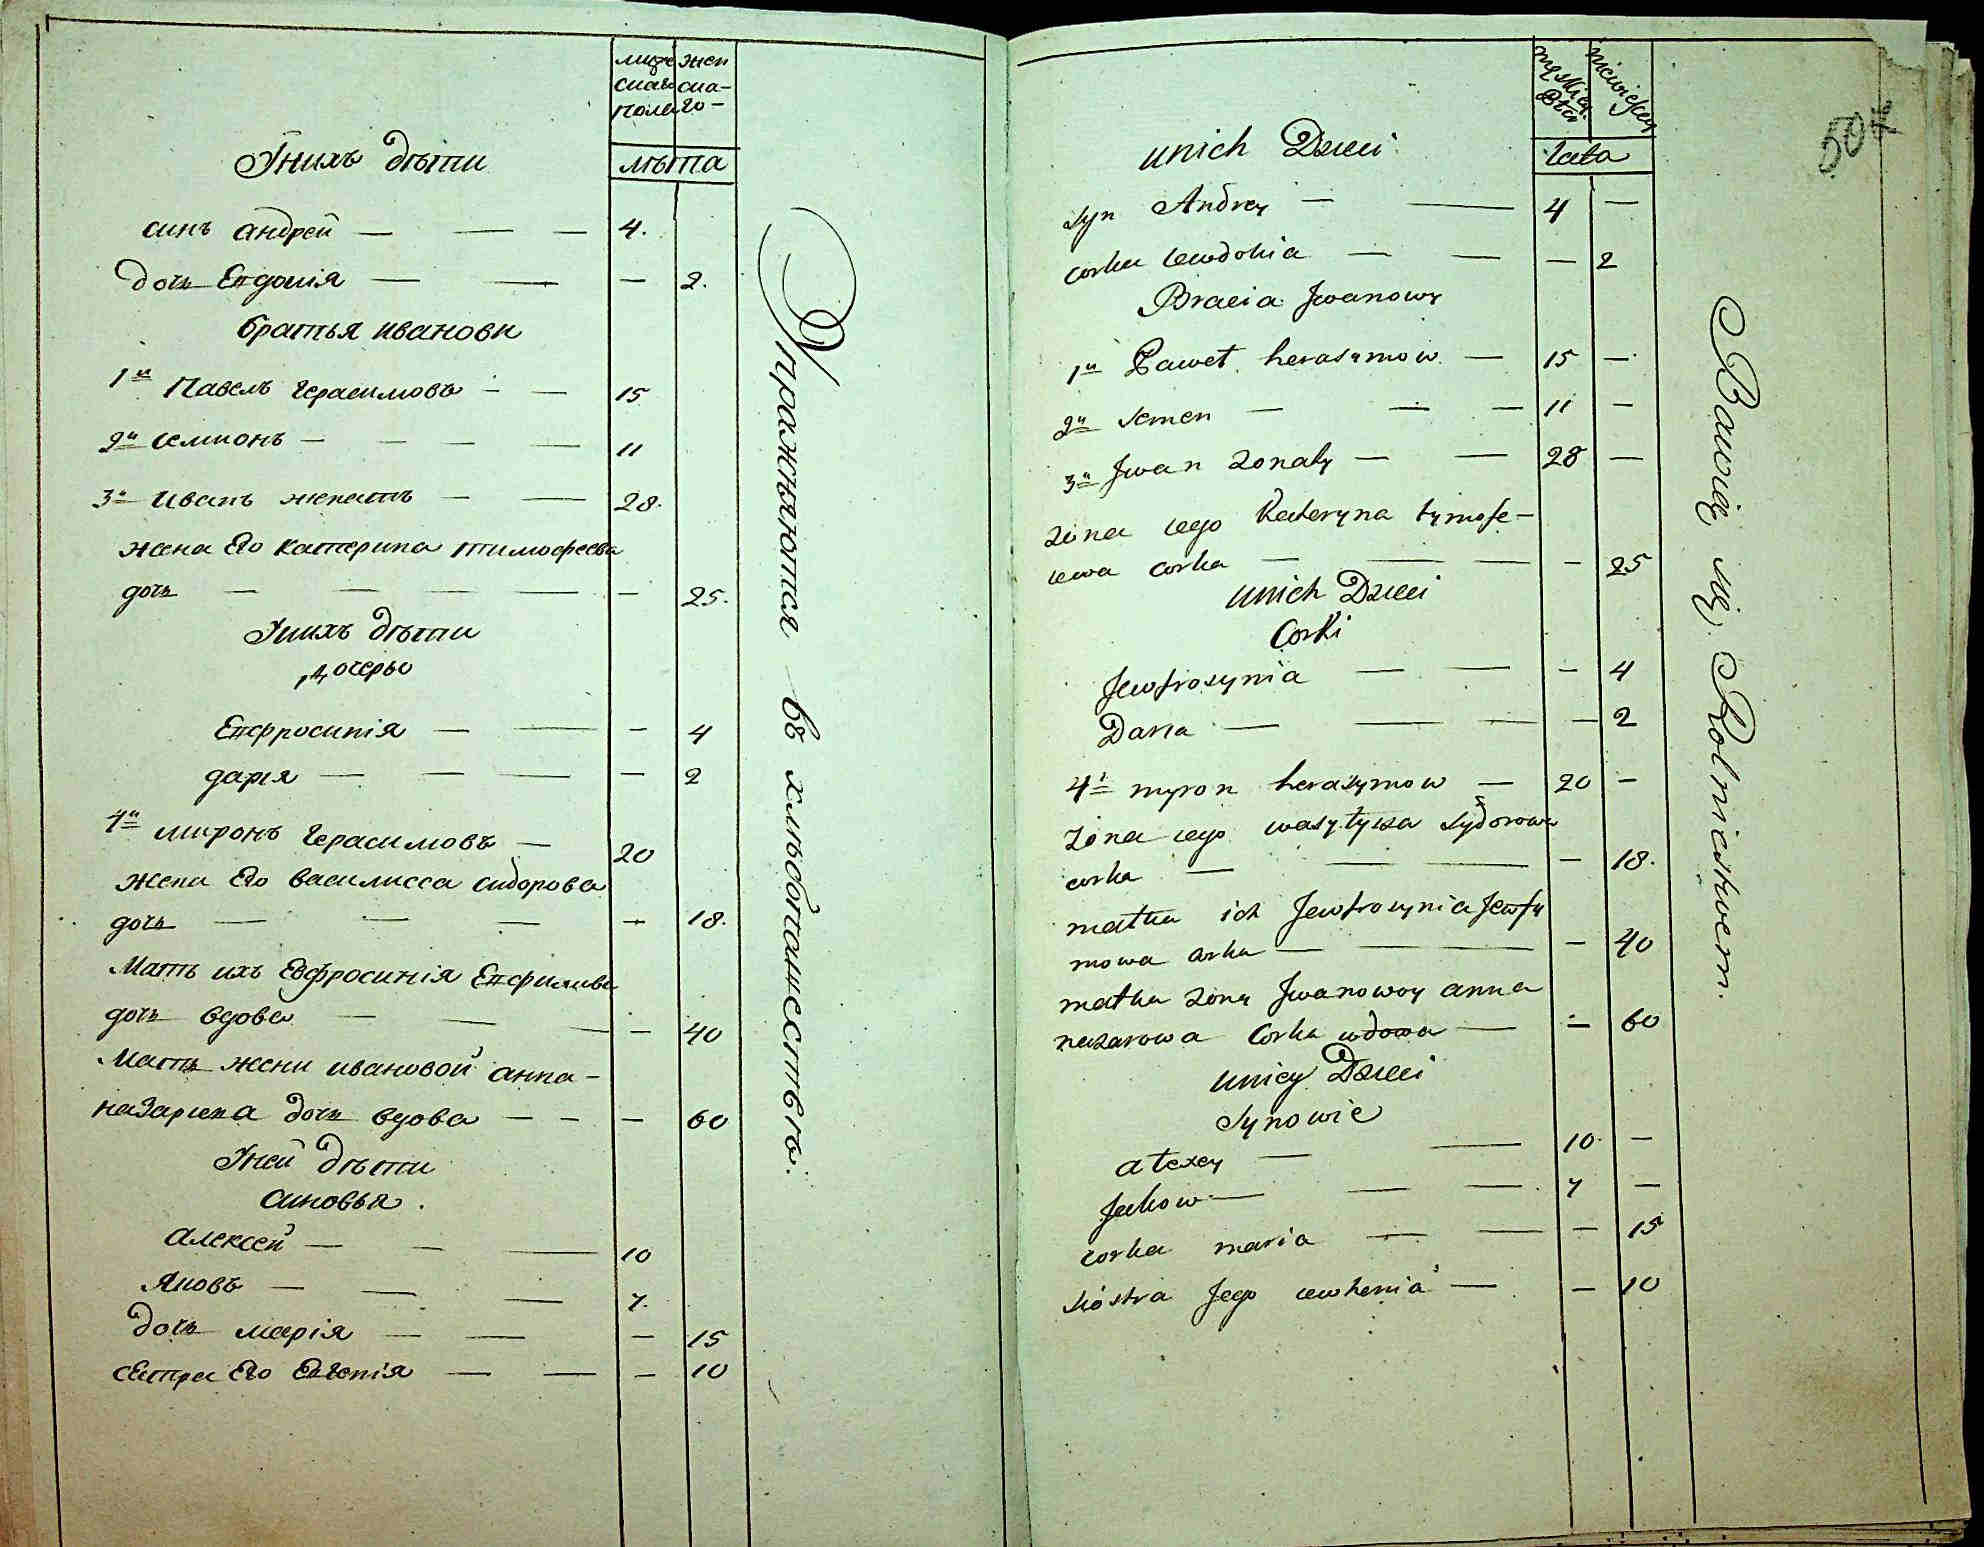 муже жен
скаго ска-
полу го-
Унихъ дѣти
лѣта
синъ андрей — — — 4.
дочь Евдокія — — — 2.
братья ивановы
1й Павелъ Герасимовъ — — 15
2й семионъ — — — — 11
3й Иванъ женатъ — — 28.
жена Его катерина тимофеева
дочь — — — — — — 25.
Унихъ дѣти
дочерьи
Евфросинія — — — 4
дарія — — — — 2
4й миронъ Герасимовъ — 20
жена Его василисса сидорова
дочь — — — — 18.
Мать ихъ Евфросинія Евфимова
дочь вдова — — — — 40
Мать жени ивановой анна-
назариева дочь вдова — — — 60
Уней дѣти
синовья.
Алексей — — — 10
Яковъ — — — 7.
дочь марія — — — 15
сестра Его Евгенія — — — 10
Упражняются въ хлѣбопашествѣ.
męskiej niewieskey
Płci
50
unich Dzieci
lata
syn Andrey — — 4 —
corka iewdokia — — — 2
Bracia Jwanowy
1y Paweł herasymow — 15 —
2y Semen — — — 11 —
3y Jwan żonaty — — 28 —
żona iego Kateryna tymofe-
iewa corka — — — — 25
unich Dzieci
Corki
Jewfrosynia — — — 4
Daria — — — — 2
4y myron herasymow — 20 —
żona iego wasylysza sydorowa
corka — — — — 18.
matka ich Jewfrosynia Jewfy
mowa corka — — — 40
matka żony Jwanowoy anna
nazarowa Corka wdowa — — 60
uniey Dzieci
Synowie
alexey — — 10. —
Jakow — — — 7 —
corka maria — — — 15
sióstra Jego iewhenia — — 10
Bawię się Rolnictwem.